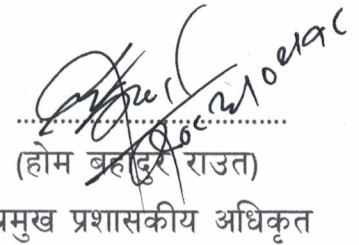 (होम बहादुर राउत)
प्रमुख प्रशासकीय अधिकृत